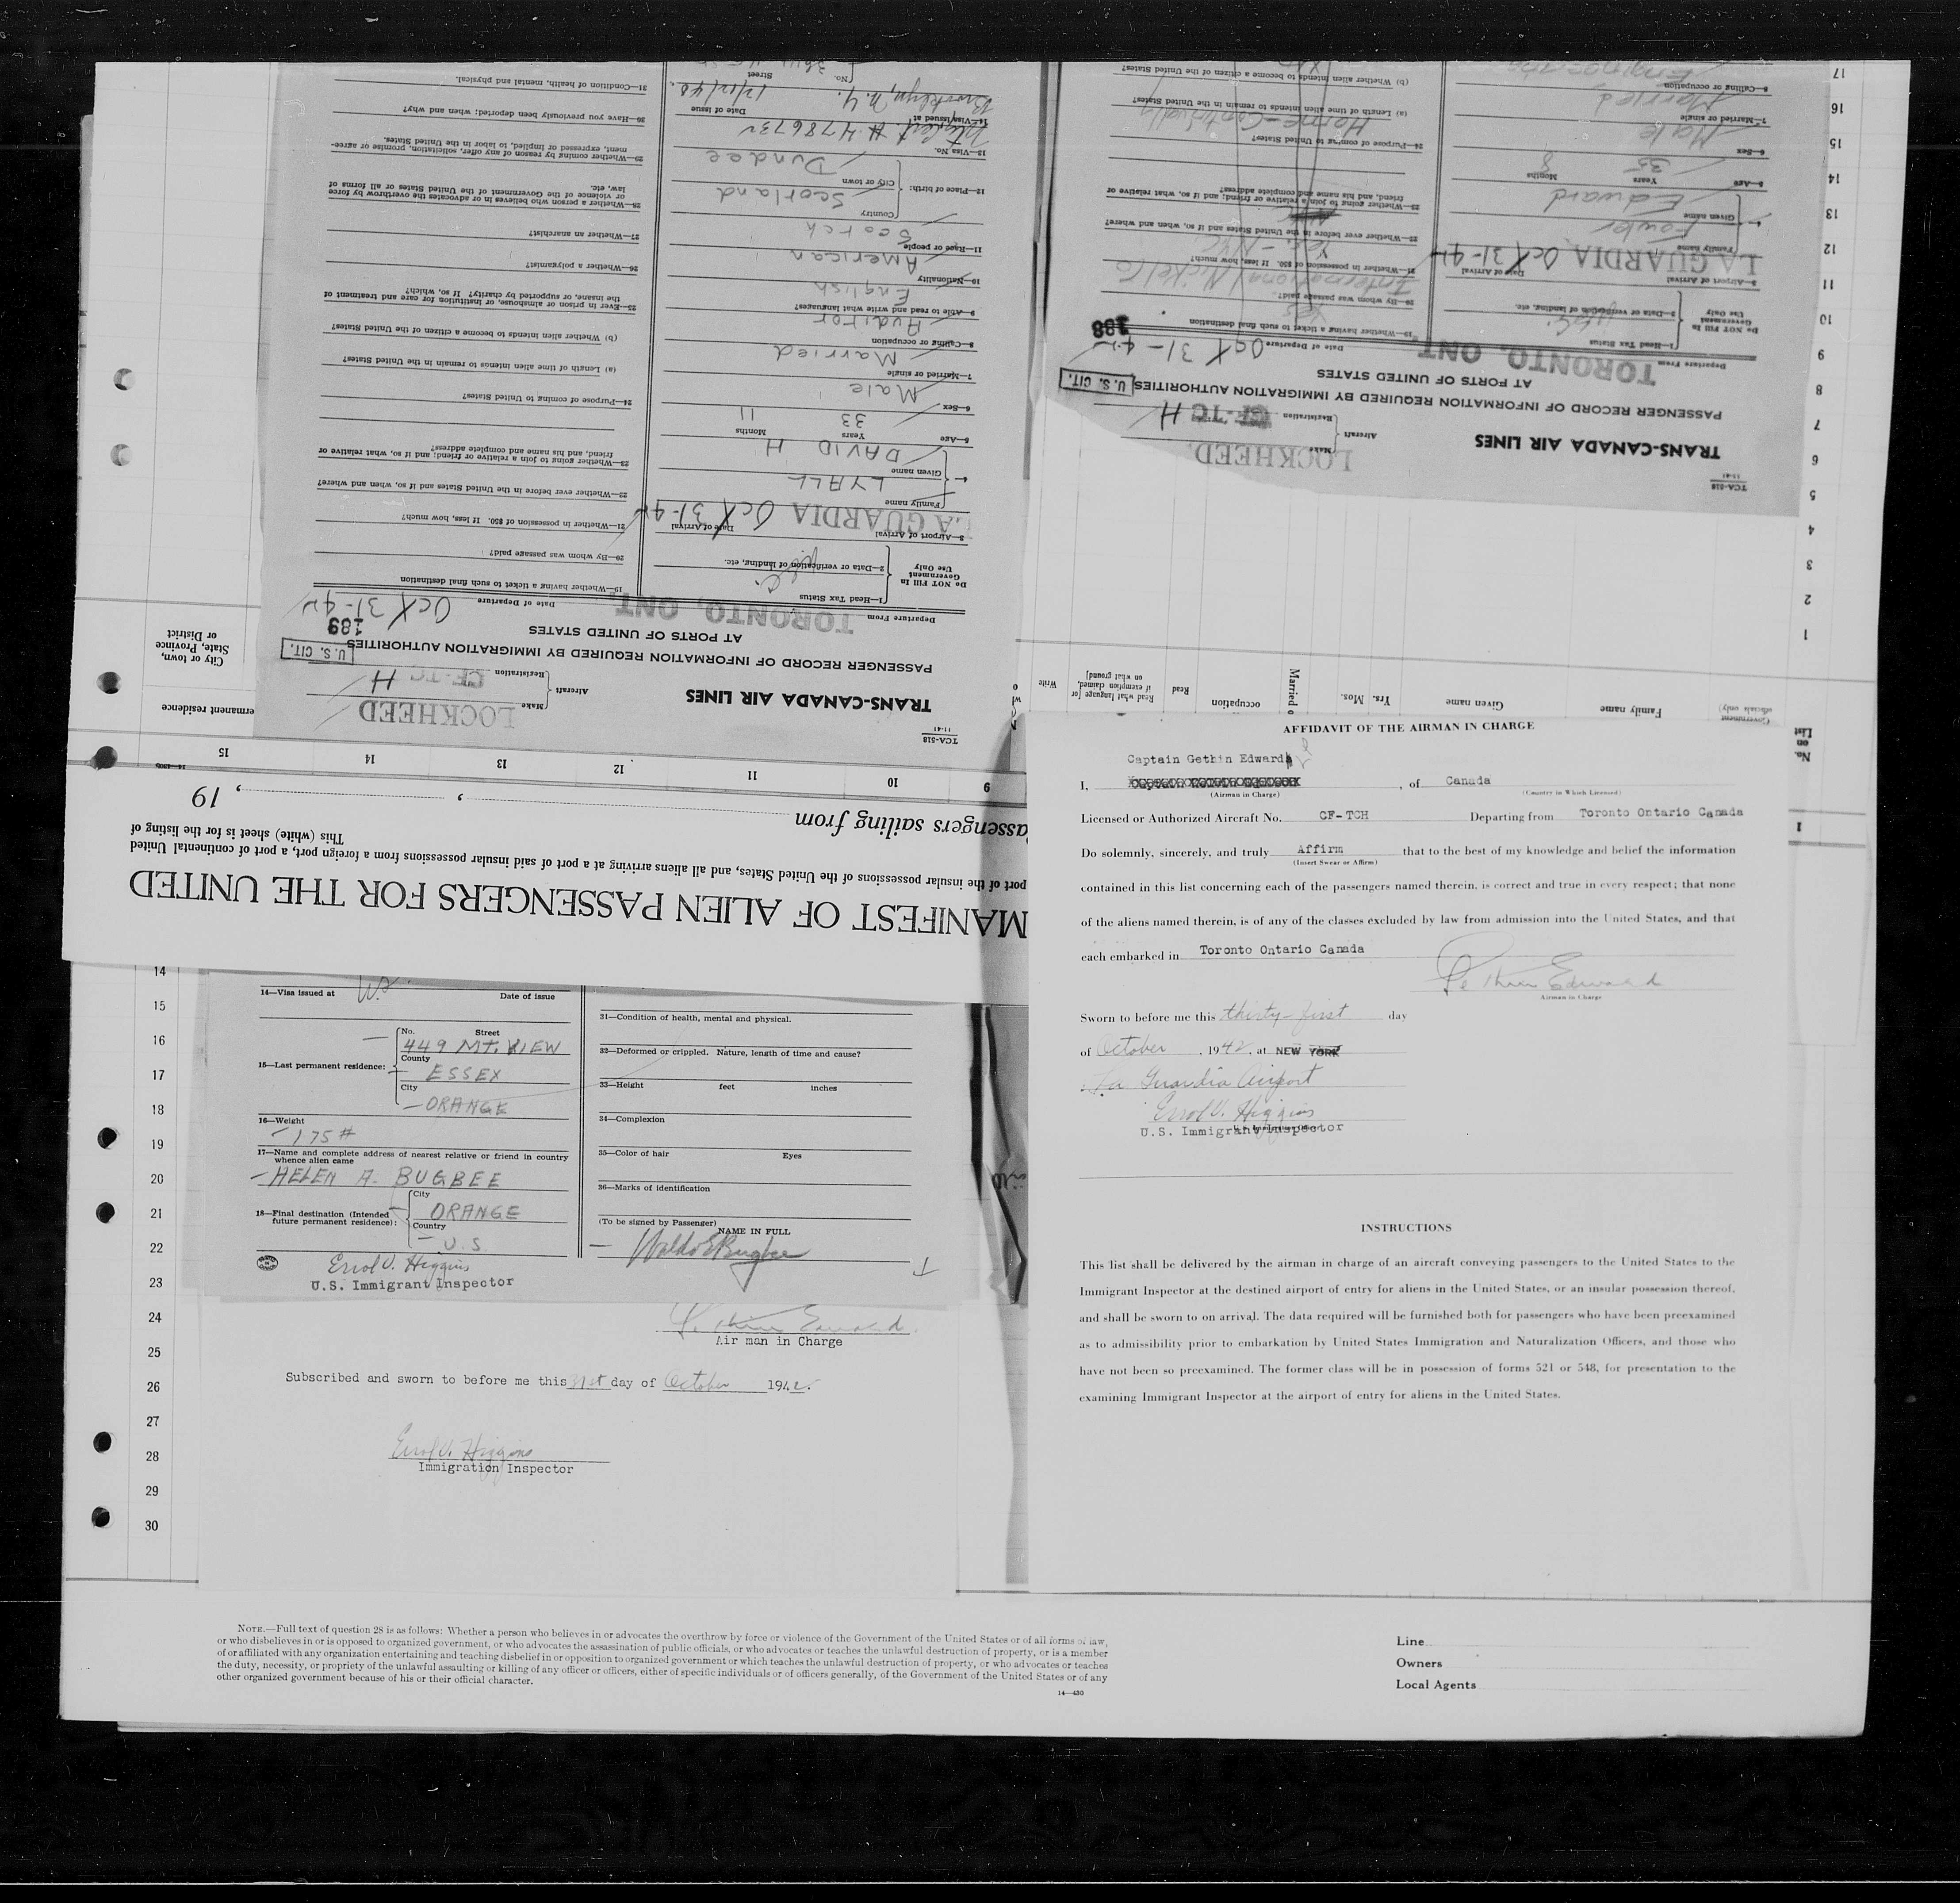 TCA-518
11-41
TRANS-CANADA AIR LINES
Aircraft
Make
LOCKHEED
Registration
CF-TC H
PASSENGER RECORD OF INFORMATION REQUIRED BY IMMIGRATION AUTHORITIES
AT PORTS OF UNITED STATES
U. S. CIT.
189
Departure From
TORONTO, ONT.
Date of Departure
Oct 31-42
DO NOT FILL IN
Government
Use Only
1—Head Tax Status
2—Data or verification of landing, etc.
3—Airport of Arrival
LA GUARDIA
Date of Arrival
Oct 31-42
Family name
LYALL
Given name
DAVID H
5—Age
Years
33
Months
11
6—Sex
Male
7—Married or single
Married
8—Calling or occupation
Auditor
9—Able to read and write what languages?
English
10—Nationality
American
11—Race or people
Scotch
12—Place of birth:
Country
Scotland
City or town
Dundee
13—Visa No.
# 4786732
14—Visa issued at
Brooklyn, N.Y.
Date of issue
1/12/40
No.
Street
19—Whether having a ticket to such final destination
20—By whom was passage paid?
21—Whether in possession of $50. If less, how much?
22—Whether ever before in the United States and if so, when and where?
23—Whether going to join a relative or friend; and if so, what relative or
friend, and his name and complete address?
24—Purpose of coming to United States?
(a) Length of time alien intends to remain in the United States?
(b) Whether alien intends to become a citizen of the United States?
25—Ever in prison or almshouse, or institution for care and treatment of
the insane, or supported by charity? If so, which?
26—Whether a polygamist?
27—Whether an anarchist?
28—Whether a person who believes in or advocates the overthrow by force
or violence of the Government of the United States or all forms of
law, etc.
29—Whether coming by reason of any offer, solicitation, promise or agree-
ment, expressed or implied, to labor in the United States.
30—Have you previously been deported; when and why?
31—Condition of health, mental and physical.
TCA-518
11-41
TRANS-CANADA AIR LINES
Aircraft
Make
LOCKHEED.
Registration
CF-TC H
PASSENGER RECORD OF INFORMATION REQUIRED BY IMMIGRATION AUTHORITIES
AT PORTS OF UNITED STATES
U. S. CIT.
188
Departure From
TORONTO, ONT.
Date of Departure
Oct 31-42
DO NOT FILL IN
Government
Use Only
1—Head Tax Status
2—Data or verification of landing, etc.
3—Airport of Arrival
LA GUARDIA
Date of Arrival
Oct 31-42
Family name
Fowler
Given name
Edward
5—Age
Years
35
Months
8
6—Sex
Male
7—Married or single
Married
8—Calling or occupation
19—Whether having a ticket to such final destination
Yes
20—By whom was passage paid?
International Nickel Co
21—Whether in possession of $50. If less, how much?
22—Whether ever before in the United States and if so, when and where?
Yes - NYC.
23—Whether going to join a relative or friend; and if so, what relative or
friend, and his name and complete address?
24—Purpose of coming to United States?
Home - Continually
(a) Length of time alien intends to remain in the United States?
(b) Whether alien intends to become a citizen of the United States?
1
2
3
4
5
6
7
8
9
10
11
12
13
14
15
16
17
No.
on
List
Family name
Given name
Yrs. Mos.
occupation
Read
Read what language [or
if exemption claimed,
on what ground]
Write
permanent residence
City or town,
State, Province
or District
9
10
11
12
13
14
15
MANIFEST OF ALIEN PASSENGERS FOR THE UNITED
port of the insular possessions of the United States, and all aliens arriving at a port of said insular possessions from a foreign port, a port of continental United
This (white) sheet is for the listing of
assengers sailing from , , 19
14—Visa issued at
Date of issue
15—Last permanent residence:
No. Street
449 MT. VIEW
County
ESSEX
City
ORANGE
16—Weight
175 #
17—Name and complete address of nearest relative or friend in country
whence alien came
HELEN A. BUGBEE
18—Final destination (Intended
future permanent residence):
City
ORANGE
Country
U.S.
Errol V. Higgins
U.S. Immigrant Inspector
31—Condition of health, mental and physical.
32—Deformed or crippled. Nature, length of time and cause?
33—Height feet inches
34—Complexion
35—Color of hair Eyes
36—Marks of identification
(To be signed by Passenger)
NAME IN FULL
Waldo E Bugbee
14
15
16
17
18
19
20
21
22
23
24
25
26
27
28
29
30
Gethin Edward
Air man in Charge
Subscribed and sworn to before me this 31st day of October 1942.
Errol V. Higgins
Immigration Inspector
AFFIDAVIT OF THE AIRMAN IN CHARGE
Captain Gethin Edward
I, , of Canada
(Airman in Charge) (Country in Which Licensed)
Licensed or Authorized Aircraft No. CF-TCH Departing from Toronto Ontario Canada
Do solemnly, sincerely, and truly Affirm that to the best of my knowledge and belief the information
(Insert Swear or Affirm)
contained in this list concerning each of the passengers named therein, is correct and true in every respect; that none
of the aliens named therein, is of any of the classes excluded by law from admission into the United States, and that
each embarked in Toronto Ontario Canada
Gethin Edward
Airman in Charge
Sworn to before me this thirty-first day
of October, 1942, at NEW YORK
La Guardia Airport
Errol V. Higgins
U.S. Immigrant Inspector
INSTRUCTIONS
This list shall be delivered by the airman in charge of an aircraft conveying passengers to the United States to the
Immigrant Inspector at the destined airport of entry for aliens in the United States, or an insular possession thereof,
and shall be sworn to on arrival. The data required will be furnished both for passengers who have been preexamined
as to admissibility prior to embarkation by United States Immigration and Naturalization Officers, and those who
have not been so preexamined. The former class will be in possession of forms 521 or 548, for presentation to the
examining Immigrant Inspector at the airport of entry for aliens in the United States.
NOTE.—Full text of question 28 is as follows: Whether a person who believes in or advocates the overthrow by force or violence of the Government of the United States or of all forms of law,
or who disbelieves in or is opposed to organized government, or who advocates the assassination of public officials, or who advocates or teaches the unlawful destruction of property, or is a member
of or affiliated with any organization entertaining and teaching disbelief in or opposition to organized government or which teaches the unlawful destruction of property, or who advocates or teaches
the duty, necessity, or propriety of the unlawful assaulting or killing of any officer or officers, either of specific individuals or of officers generally, of the Government of the United States or of any
other organized government because of his or their official character.
14—430
Line
Owners
Local Agents